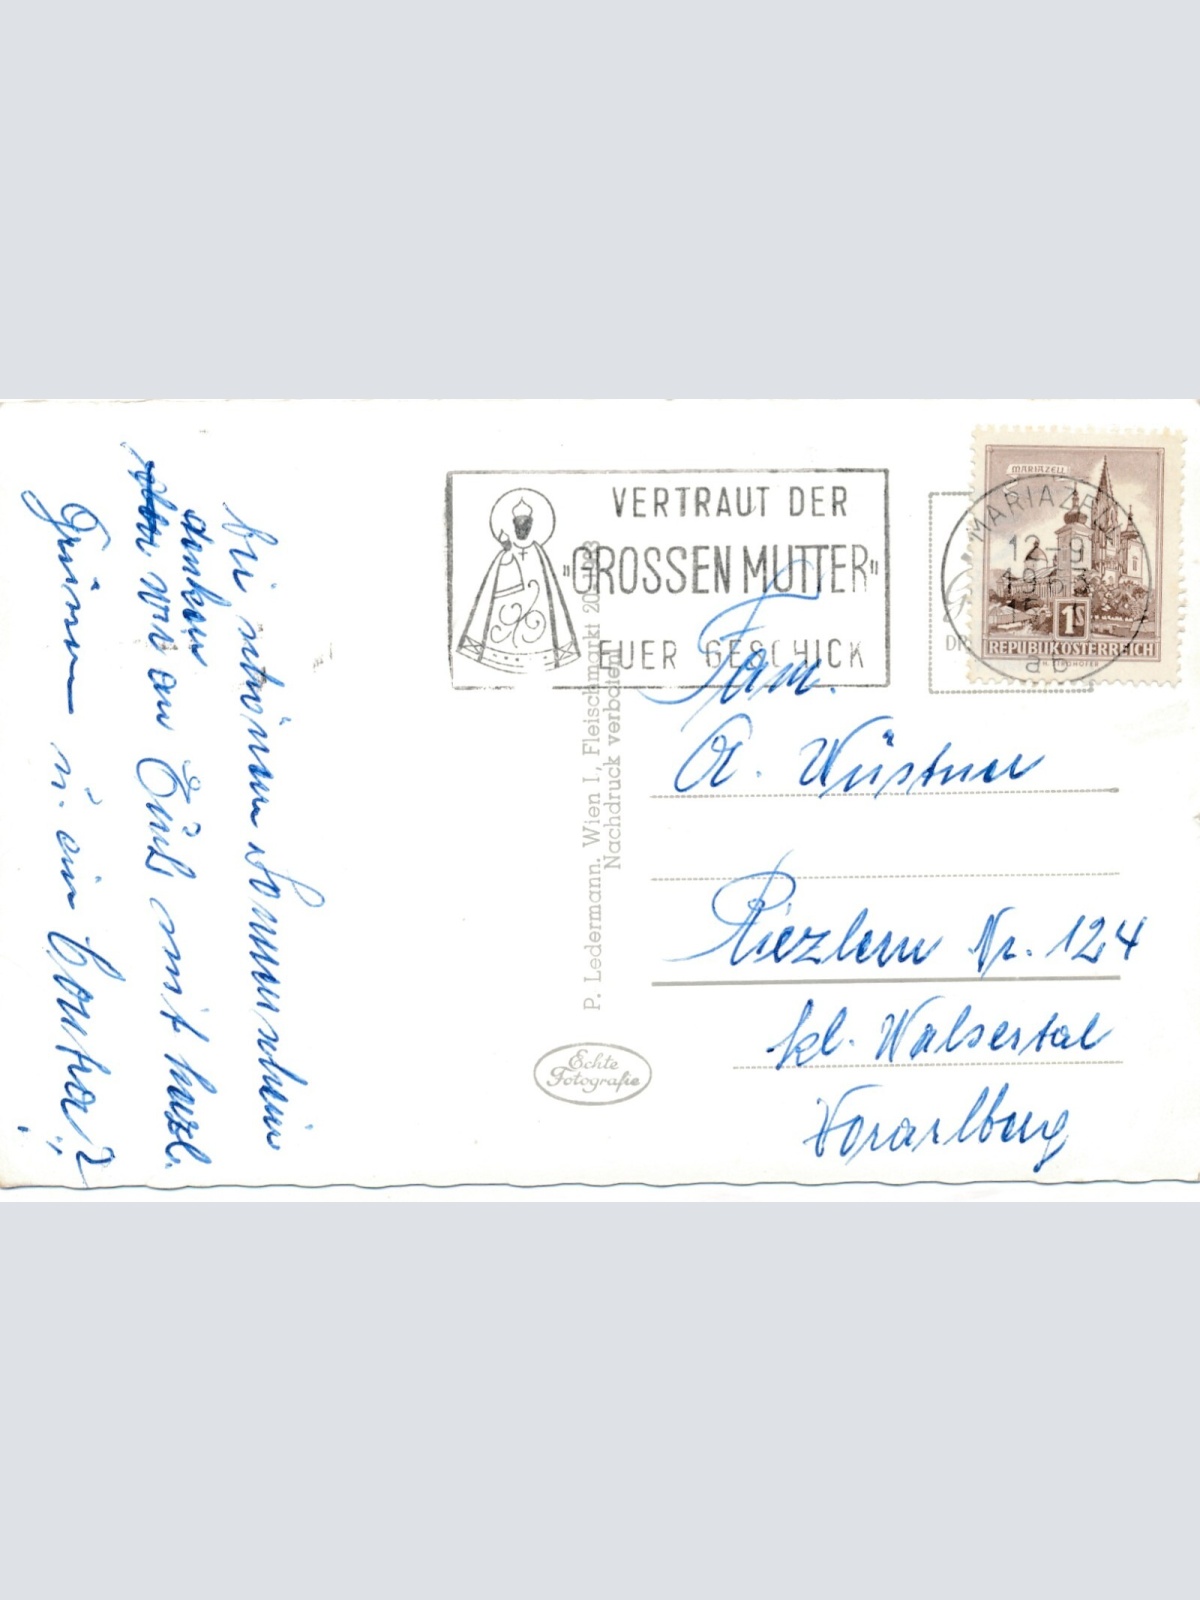 bei schönem Sonnenschein
denken
wir an Euch mit herzl.
Grüssen u. ein
VERTRAUT DER
"GROSSEN MUTTER"
EUER GESCHICK
MARIAZELL
MARIAZELL
12-9
1963
ab
1S
REPUBLIK ÖSTERREICH
P. Ledermann, Wien I, Fleischmarkt 20-
Nachdruck verboten
Echte
Fotografie
Fam.
A. Wüstner
Riezlern Nr. 124
kl. Walsertal
Vorarlberg